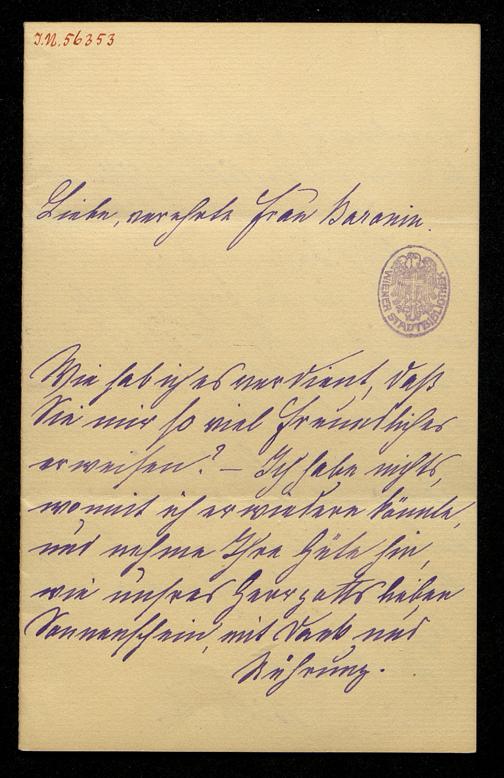 I.N. 56353
Liebe, verehrte Frau Baronin.
WIENER STADTBIBLIOTHEK
Wie hab ich es verdient, daß
Sie mir so viel Freundliches
erweisen? – Ich habe nichts,
womit ich erwiedern könnte,
und nehme Ihre Güte hin,
wie unsres Herrgotts lieben
Sonnenschein, mit Dank und
Rührung.